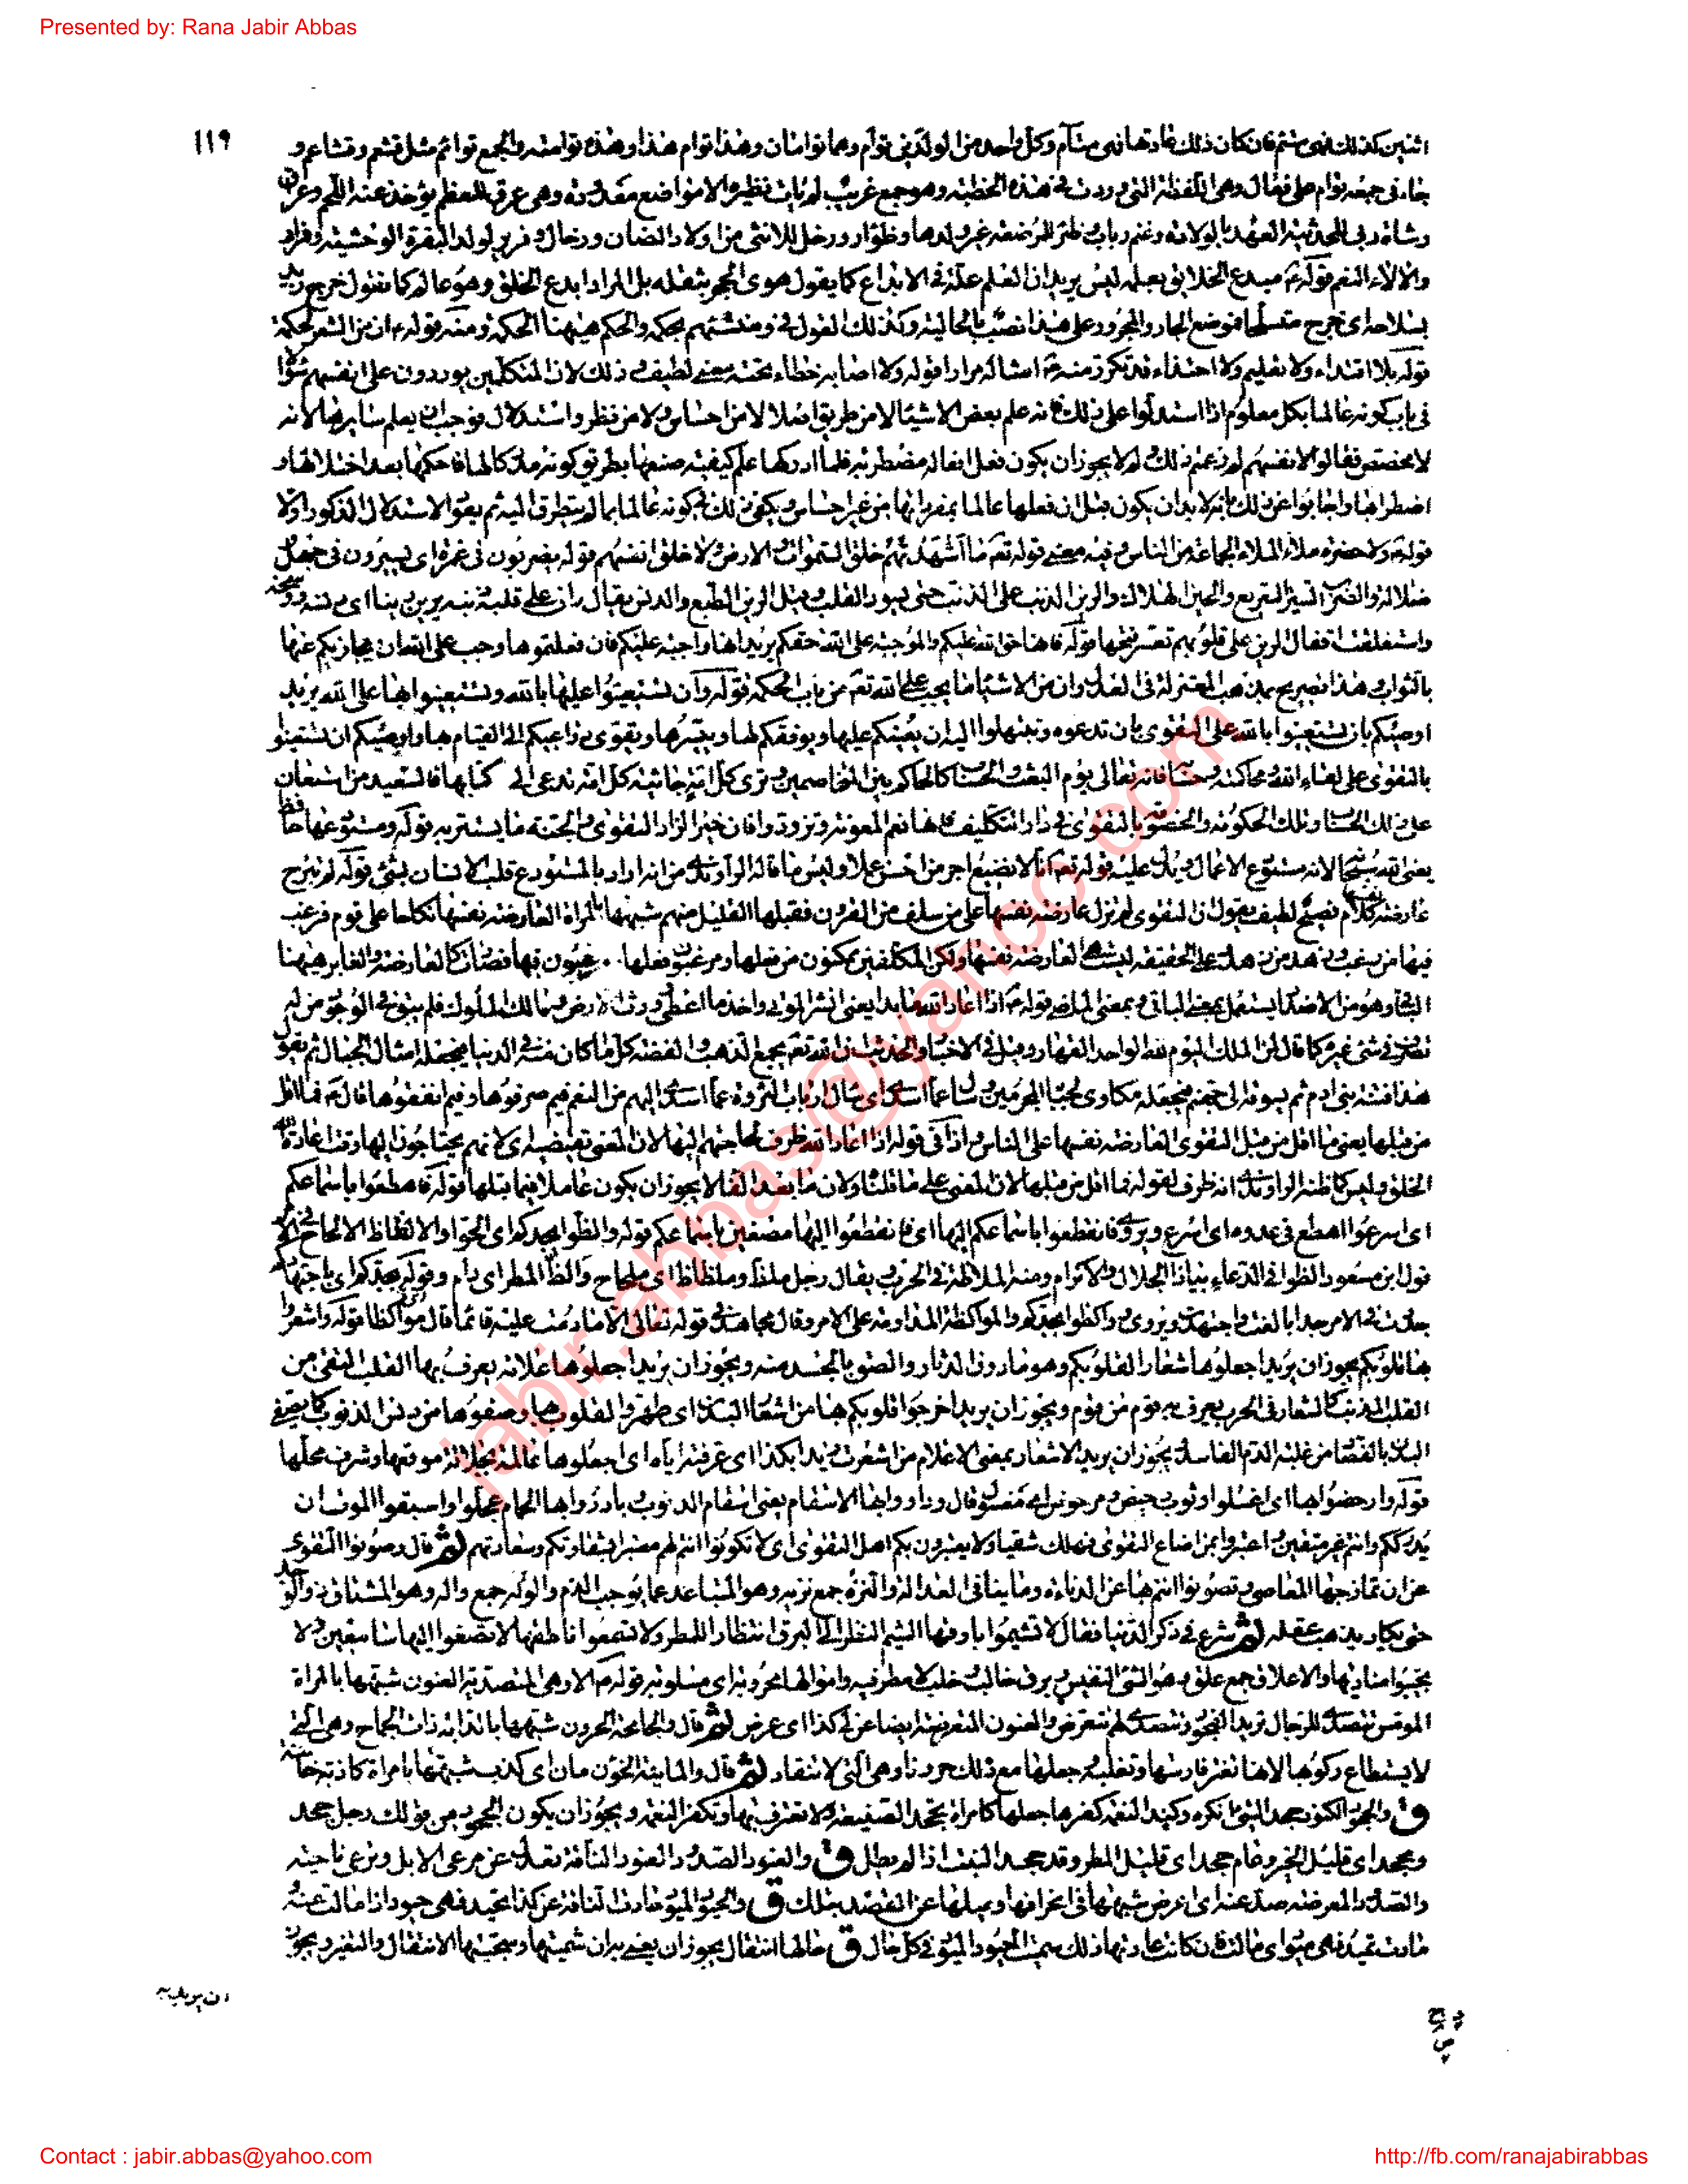 Presented by: Rana Jabir Abbas
١١٩
اثنين كذلك فهى متئم فان كان ذلك عادتها فهى متآم وكل واحد من الولدين توأم وهما توأمان وهذا توأم هذا وهذه توأمته والجمع توائم مثل قشعم وقشاعم و
جاء فى جمعه توام على فعال وهى اللفظة التى وردت فى هذه الخطبة وهو جمع غريب لم يأت نظيره الا فى مواضع معدودة وهى عرق العظم يؤخذ عنه اللحم وعراق
وشاة ربى للحديثة العهد بالولادة وغنم رباب وظئر للمرضعة غير ولدها وظؤار ورخل للانثى من اولاد الضان ورخال وفرير لولد البقرة الوحشية وفرار
والآلاء النعم قوله ع مبتدع الخلائق بعلمه ليس يريد ان العلم علة فى الابداع كما يقول هوى الحجر بثقله بل المراد ابدع الخلق وهو عالم كما تقول خرج زيد
بسلاحه اى خرج متسلحا فموضع الجار والمجرور على هذا نصب بالحالية وكذلك القول فى ومنشئهم بحكمه والحكم ههنا الحكمة ومنه قوله ع ان من الشعر لحكمة
قوله بلا اقتداء ولا تعليم ولا احتذاء قد تكرر منه ع امثاله مرارا قوله ولا اصابة خطاء تحته معنى لطيف و ذلك لان المتكلمين يوردون على انفسهم سؤالا
فى باب كونه عالما بكل معلوم اذا استدلوا على ذلك فانه علم بعض الاشياء لا من طريق اصلا لا من احساس ولا من نظر واستدلال فوجب ان يعلم سايرها لانه
لا مخصص فقالوا لانفسهم لم زعمتم ذلك ولم لا يجوز ان يكون فعل افعاله مضطربة فلما ادركها علم كيفية صنعها بطريق كونه مدركا لها فاحكمها بعد اختلالها و
اضطرابها واجابوا عن ذلك بانه لا بد ان يكون قبل ان فعلها عالما بمفرداتها من غير احساس ويكفى ذلك فى كونه عالما بما لم يتطرق اليه ثم يعود الاستدلال المذكور اولا
قوله ع ولا حضرة ملاء الملاء الجماعة من الناس وفيه معنى قوله تع ما اشهدتهم خلق السموات والارض ولا خلق انفسهم قوله يضربون فى غمرة اى يسيرون فى جهل
ضلالة والضرب السير السريع والحين الهلاك والرين الذنب على الذنب حتى يسود القلب وقيل الرين الطبع والدنس يقال ران على قلبه ذنبه يرين رينا اى دنسه ووسخه
واستغلقت اقفال الرين على قلوبهم تعسر فتحها قوله فانها حق الله عليكم والموجبة على الله حقكم يريد انها واجبة عليكم فان فعلتموها وجب على الله ان يجازيكم عنها
بالثواب وهذا تصريح بمذهب المعتزلة فى العدل وان من الاشياء ما يجب على الله تع من باب الحكمة قوله وان تستعينوا عليها بالله وتستعينوا بها على الله يريد
اوصيكم بان تستعينوا بالله على التقوى بان تدعوه وتبتهلوا اليه ان يعينكم عليها ويوفقكم لها وييسرها ويقوى دواعيكم الى القيام بها واوصيكم ان تستعينوا
بالتقوى على لقاء الله ومحاكمته وحسابه فانه تعالى يوم البعث والحساب كالحاكم بين المتخاصمين وترى كل امة جاثية كل امة تدعى الى كتابها فالسعيد من استعان
على ذلك الحساب وتلك الحكومة والخصومة بالتقوى فى دار التكليف فانها نعم المعونة وتزودوا فان خير الزاد التقوى والجنة ما يستتر به قوله ومستودعها حافظ
يعنى الله سبحانه لانه مستودع الاعمال ويدل عليه قوله تع انا لا نضيع اجر من احسن عملا وليس ما قاله الراوندى من انه اراد بالمستودع قلب الانسان بشئ قوله لم تبرح
عارضة نفسها كلام فصيح لطيف يقول ان التقوى لم تزل عارضة نفسها على من سلف من القرون فقبلها القليل منهم شبهها بالمراة العارضة نفسها نكاحا على قوم فرغب
فيها من رغب وزهد من زهد وعلى الحقيقة ليست هى العارضة نفسها ولكن المكلفين ممكنون من فعلها ومرغبون فيها فصارت كالعارضة والغابر ههنا
الباقى وهو من الاضداد يستعمل بمعنى الباقى وبمعنى الماضى قوله ع اذا اعاد الله ما ابدا يعنى انشر الموتى واخذ ما اعطى وورث الارض ومالك الملوك فلم يبق فى الوجود من له
تصرف فى شئ غيره كما قال لمن الملك اليوم لله الواحد القهار وقيل فى الاخبار والحديث ان الله تع يجمع الذهب والفضة كل ما كان منه فى الدنيا فيجعله امثال الجبال ثم يقول
هذا فتنة بنى ادم ثم يسوقه الى جهنم فيجعله مكاوى لجباه المجرمين وسال عما اسدى اى سال ارباب الثروة عما اسدى اليهم من النعم فيم صرفوها وفيم انفقوها قال ع فما اقل
من قبلها يعنى ما اقل من قبل التقوى العارضة نفسها على الناس واذا فى قوله اذا اعاد الله ظرف لحاجتهم اليها لان المعنى يقتضيه اى لانهم يحتاجون اليها وقت اعادة الله
الخلق وليس كما ظنه الراوندى انه ظرف لقوله فما اقل من قبلها لان المعنى على ما قلناه ولان ما بعد الفاء لا يجوز ان يكون عاملا فيما قبلها قوله فاهطعوا باسماعكم
اى اسرعوا اهطع فى عدوه اى اسرع ويروى فانقطعوا باسماعكم اليها اى فانقطعوا اليها مصغين باسماعكم قوله والظوا بجدكم اى الحوا والالظاظ الالحاح فى الامر
قول ابن مسعود الظوا فى الدعاء بياذا الجلال والاكرام ومنه الملاظة فى الحرب يقال رجل ملظ وملظاظ اى ملحاح والظ المطر اى دام وقوله بجدكم اى باجتهادكم
جددت فى الامر جدا بالغت واجتهدت ويروى وواكظوا بجدكم والمواكظة المداومة على الامر وقال مجاهد فى قوله تعالى الا ما دمت عليه قائما قال اى مواكظا قوله واشعروا
بها قلوبكم يجوز ان يريد اجعلوها شعار القلوبكم وهو ما دون الدثار والصق بالجسد منه ويجوز ان يريد اجعلوها علامة يعرف بها القلب التقى من
القلب المذنب كالشعار فى الحرب يعرف به قوم من قوم ويجوز ان يريد اخرجوا قلوبكم بها من اشعار البدن اى طهروا القلوب بها وصفوها من دنس الذنوب كما يصفى
البدن بالفصاد من غلبة الدم الفاسد ويجوز ان يريد الاشعار بمعنى الاعلام من اشعرت زيدا بكذا اى عرفته اياه اى اجعلوها عالمة بجلالة موقعها وشرف محلها
قوله وارحضوا بها اى اغسلوا وثوب رحيض ومرحوض اى مغسول قال وداووا بها الاسقام يعنى اسقام الذنوب بادروا بها الحمام عجلوا واسبقوا الموت ان
يدرككم وانتم غير متقين واعتبروا بمن اضاع التقوى فهلك شقيا ولا يعتبرن بكم اهل التقوى اى لا تكونوا انتم لهم معتبرا بشقاوتكم وسعادتهم ثم قال وصونوا التقوى
عن ان تمازجها المعاصى وتصونوا انتم بها عن الدناءة وما ينافى العدالة والنزه جمع نزيه وهو المتباعد عما يوجب الذم والوله جمع واله وهو المشتاق ذو الوجد
حتى يكاد يذهب عقله ثم شرع فى ذكر الدنيا فقال لا تشيموا بارقها الشيم النظر الى البرق انتظارا للمطر ولا تسمعوا ناطقها لا تصغوا اليها سامعين ولا
تجيبوا مناديها والاعلاق جمع علق وهو الشئ النفيس وبرق خالب خلب لا مطر فيه واموالها محروبة اى مسلوبة قوله ع الا وهى المتصدية العنون شبهها بالمراة
المومس تتصدى للرجال تريد الفجور وتتصدى لهم تتعرض والعنون المتعرضة ايضا عن لى كذا اى عرض ثم قال والجامحة الحرون شبهها بالدابة ذات الجماح وهى التى
لا يستطاع ركوبها لانها تعثر فارسها وتغلبه وجعلها مع ذلك حرونا وهى التى لا تنقاد ثم قال والماينة الخؤن مان اى كذب شبهها بامراة كاذبة خائنة
ق والجحود الكنود جحد الشئ انكره وكند النعمة كفرها جعلها كامراة تجحد الصنيعة ولا تعترف بها وتكفر النعمة ويجوز ان يكون الجحود من قولك رجل جحد
وجحد اى قليل الخير وعام جحد اى قليل المطر وقد جحد النبت اذا لم يطل ق والعنود الصدود العنود الناقة تعدل عن مرعى الابل وترعى ناحية
والصدود المعرضة صد عنه اى اعرض شبهها فى انحرافها وميلها عن القصد بتلك ق والحيود الميود حادت الناقة عن كذا تحيد فهى حيود اذا مالت عنه
مادت تميد فهى ميود اى مالت فان كانت عادتها ذلك سميت الحيود الميود فى كل حال ق حالها انتقال يجوز ان يعنى به ان شيمتها وسجيتها الانتقال والتغير ويجوز
ان يريد به
Contact : jabir.abbas@yahoo.com
http://fb.com/ranajabirabbas
jabir.abbas@yahoo.com